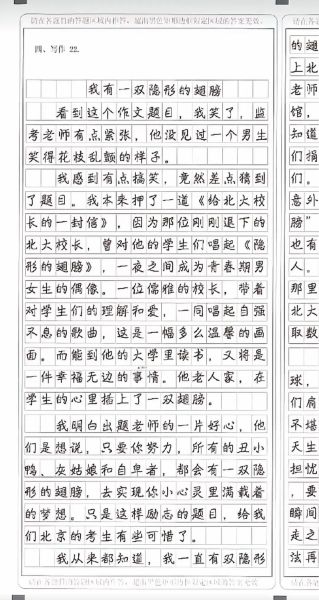 请在各题目的答题区域内作答，超出黑色矩形边框限定区域的答案无效
四、写作 22.
我有一双隐形的翅膀
看到这个作文题目，我笑了，监
考老师有点紧张，他没见过一个男生
笑得花枝乱颤的样子。
我感到有点搞笑，竟然差点猜到
了题目。我本来押了一道《给北大校
长的一封信》，因为那位刚刚退下的
北大校长，曾对他的学生们唱起《隐
形的翅膀》，一夜之间成为青春期男
女生的偶像。一位儒雅的校长，带着
对学生们的理解和爱，一同唱起自强
不息的歌曲，这是一幅多么温馨的画
面。而能到他的大学里读书，又将是
一件幸福无边的事情。他老人家，在
学生的心里插上了一双翅膀。
我明白出题老师的一片好心，他
们是想说，只要你努力，所有的丑小
鸭、灰姑娘和自卑者，都会有一双隐
形的翅膀，去实现你小心灵里满载着
的梦想。只是这样励志的题目，给我
们北京的考生有些可惜了。
我从来都知道，我一直有双隐形
请在各
的翅
上北
老师
馆，
知道
们捐
们。
意外
膀"
也有
人。
那里
北大
取数
球，
们肩
不堪
天生
担忧
，要
瞬间
走之
法再
请在各